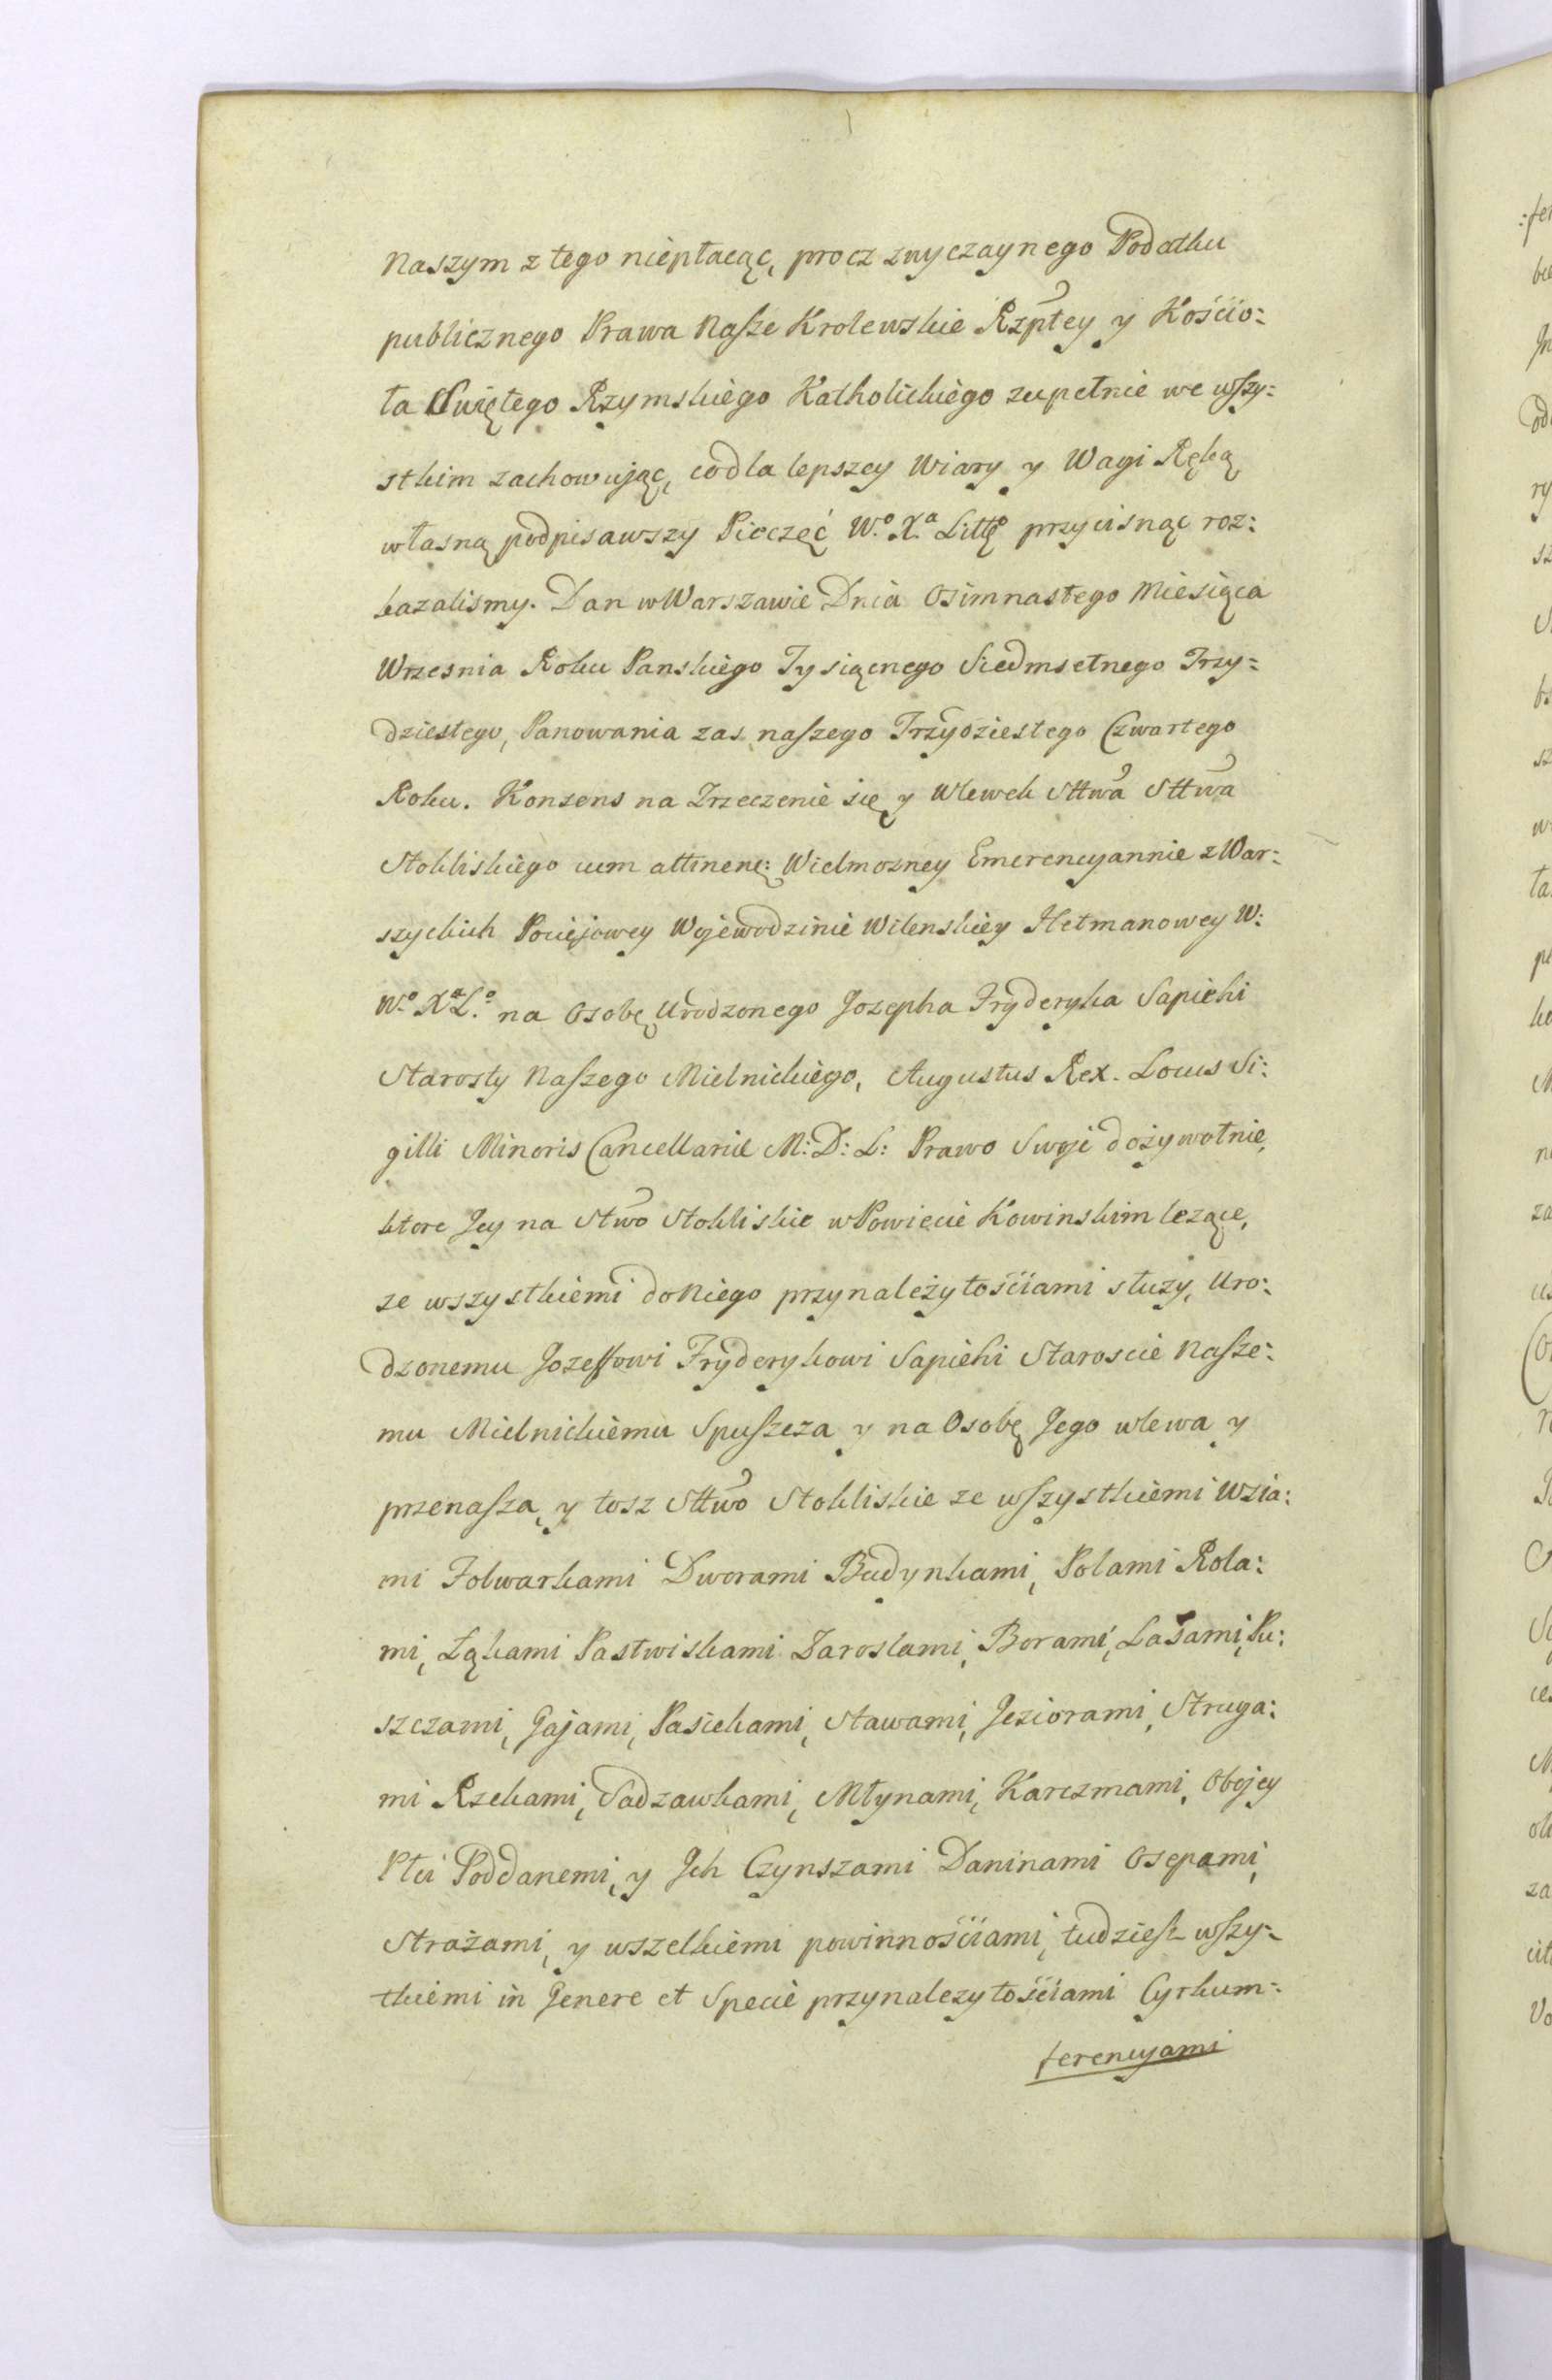 Naszym z tego niepłacąc, procz zwyczaynego Podatku
publicznego Prawa Nasze Krolewskie Rzptey y Kościo:
ła Swiętego Rzymskiego Katholickiego zupełnie we wszy:
stkim zachowując, co dla lepszey Wiary y Wagi Ręką
własną podpisawszy Pieczęć W.º X.ª Littº przycisnąc roz:
kazalismy. Dan w Warszawie Dnia Osimnastego Miesiąca
Wrzesnia Roku Panskiego Tysiącnego Siedmsetnego Trzy:
dziestego, Panowania zas naszego Trzydziestego Czwartego
Roku. Konsens na Zrzeczenie się y Wlewek Sttwa Sttwa
Stokliskiego cum attinenę: Wielmozney Emerencyannie z War:
szyckich Pociejowey Wojewodzinie Wilenskiey Hetmanowey W:
W.º Xª L.º na Osobę Urodzonego Jozepha Fryderyka Sapiehi
Starosty Naszego Mielnickiego, Augustus Rex. Locus Si:
gilli Minoris Cancellariæ M: D: L: Prawo Swoje dożywotnie,
ktore Jey na Stwo Stokliskie w Powiecie Kowinskim lezące,
ze wszystkiemi do Niego przynależytościami słuzy, Uro:
dzonemu Jozeffowi Fryderykowi Sapiehi Staroscie Nasze:
mu Mielnickiemu Spuszcza y na Osobę Jego wlewa y
przenasza, y tosz Sttwo Stokliskie ze wszystkiemi Wsia:
mi Folwarkami Dworami Budynkami, Polami Rola:
mi, Łąkami Pastwiskami Zaroslami, Borami, Lasami, Pu:
szczami, Gajami, Pasiekami, Stawami, Jeziorami, Struga:
mi Rzekami, Sadzawkami, Młynami, Karczmami, Obojey
Płci Poddanemi, y Ich Czynszami Daninami Osepami,
Strażami, y wszelkiemi powinnościami, tudziesz wszy:
tkiemi in Genere et Specie przynalezytościami Cyrkum:
ferencyami